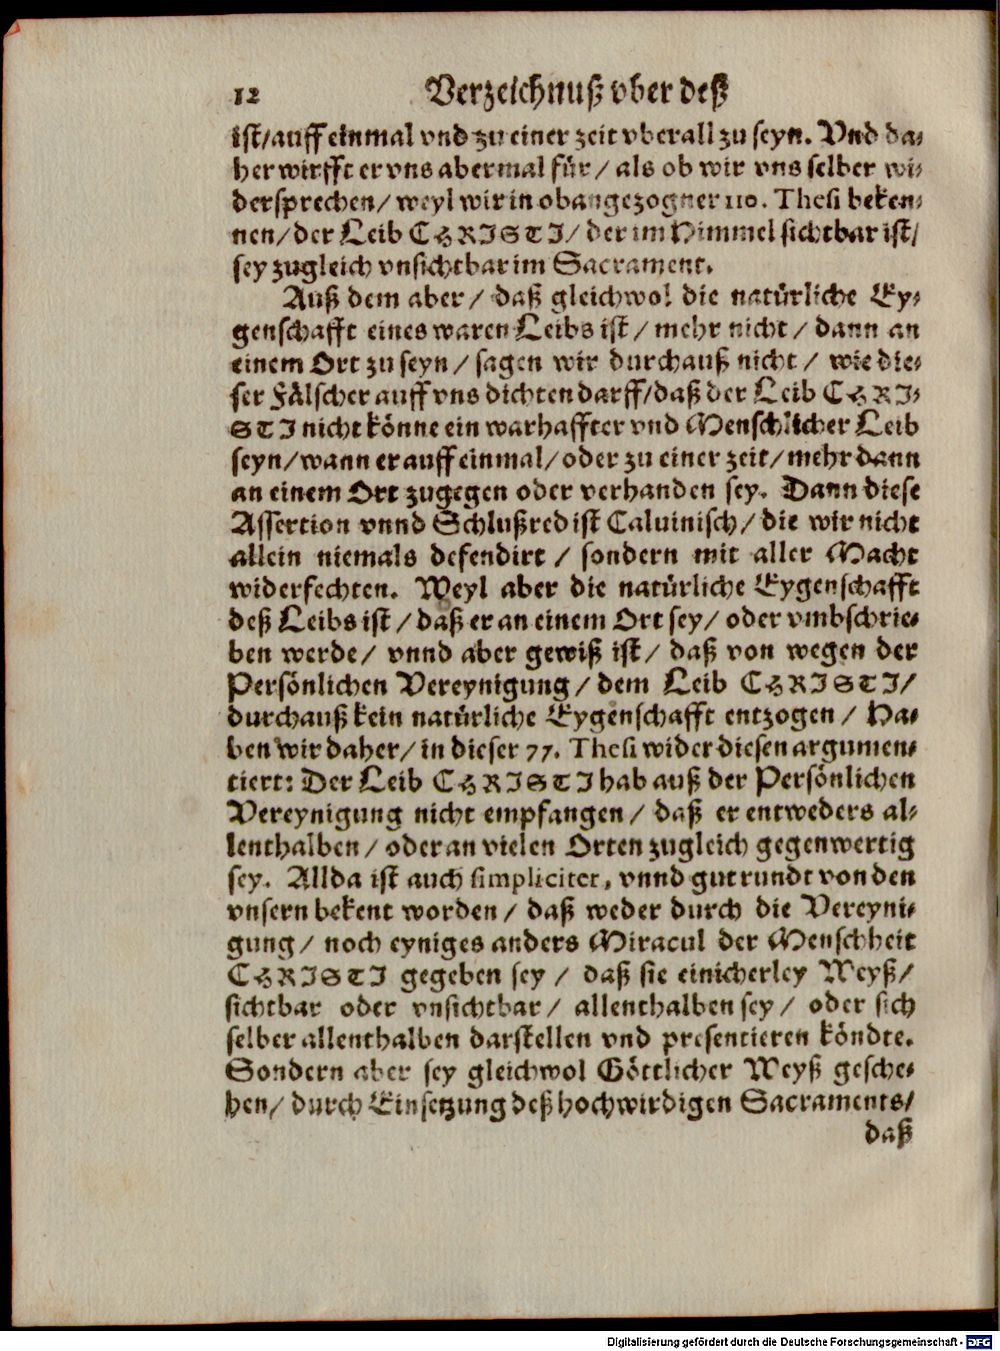 12 Verzeichnuß vber deß
ist/auff einmal vnd zu einer zeit vberall zu seyn. Vnd da-
her wirfft er vns abermal für / als ob wir vns selber wi-
dersprechen/ weyl wir in obangezogner 110. Thesi beken-
nen/ der Leib CHRISTI/ der im Himmel sichtbar ist/
sey zugleich vnsichtbar im Sacrament.
Auß dem aber / daß gleichwol die natürliche Ey-
genschafft eines waren Leibs ist / mehr nicht / dann an
einem Ort zu seyn / sagen wir durchauß nicht / wie die-
ser Fälscher auff vns dichten darff/daß der Leib CHRI-
STI nicht könne ein warhaffter vnd Menschlicher Leib
seyn/wann er auff einmal/oder zu einer zeit/mehr dann
an einem Ort zugegen oder verhanden sey. Dann diese
Assertion vnnd Schlußred ist Caluinisch/ die wir nicht
allein niemals defendirt / sondern mit aller Macht
widerfechten. Weyl aber die natürliche Eygenschafft
deß Leibs ist / daß er an einem Ort sey/ oder vmbschrie-
ben werde/ vnnd aber gewiß ist/ daß von wegen der
Persönlichen Vereynigung / dem Leib CHRISTI/
durchauß kein natürliche Eygenschafft entzogen / Ha-
ben wir daher/ in dieser 77. Thesi wider diesen argumen-
tiert: Der Leib CHRISTI hab auß der Persönlichen
Vereynigung nicht empfangen / daß er entweders al-
lenthalben / oder an vielen Orten zugleich gegenwertig
sey. Allda ist auch simpliciter, vnnd gut rundt von den
vnsern bekent worden / daß weder durch die Vereyni-
gung / noch eyniges anders Miracul der Menschheit
CHRISTI gegeben sey / daß sie einicherley Weyß/
sichtbar oder vnsichtbar / allenthalben sey / oder sich
selber allenthalben darstellen vnd presentieren köndte.
Sondern aber sey gleichwol Göttlicher Weyß gesche-
hen/ durch Einsetzung deß hochwirdigen Sacraments/
daß
Digitalisierung gefördert durch die Deutsche Forschungsgemeinschaft - DFG